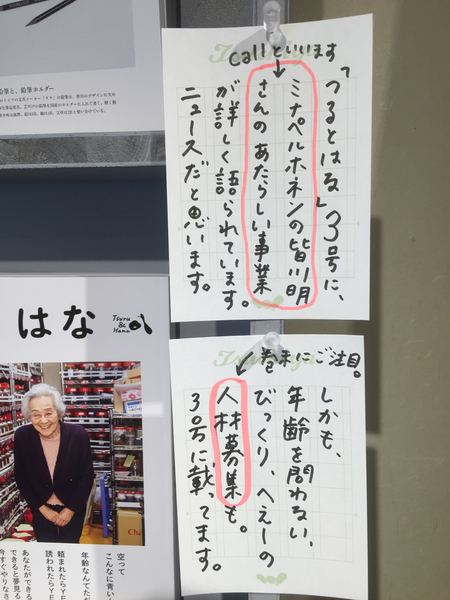 Callといいます
「つるとはな」3号に、
ミナペルホネンの皆川明
さんのあたらしい事業
が詳しく語られています。
ニュースだと思います。
巻末にご注目。
しかも、
年齢を問わない、
びっくり、へえーの
人材募集も。
3号に載ってます。
鉛筆と、鉛筆ホルダー
はな
Tsuru
&
Hana
空って
こんなに青い
年齢なんてただ
頼まれたらYE
誘われたらYE
あなたができる
できると夢見る
今すぐやりなさ